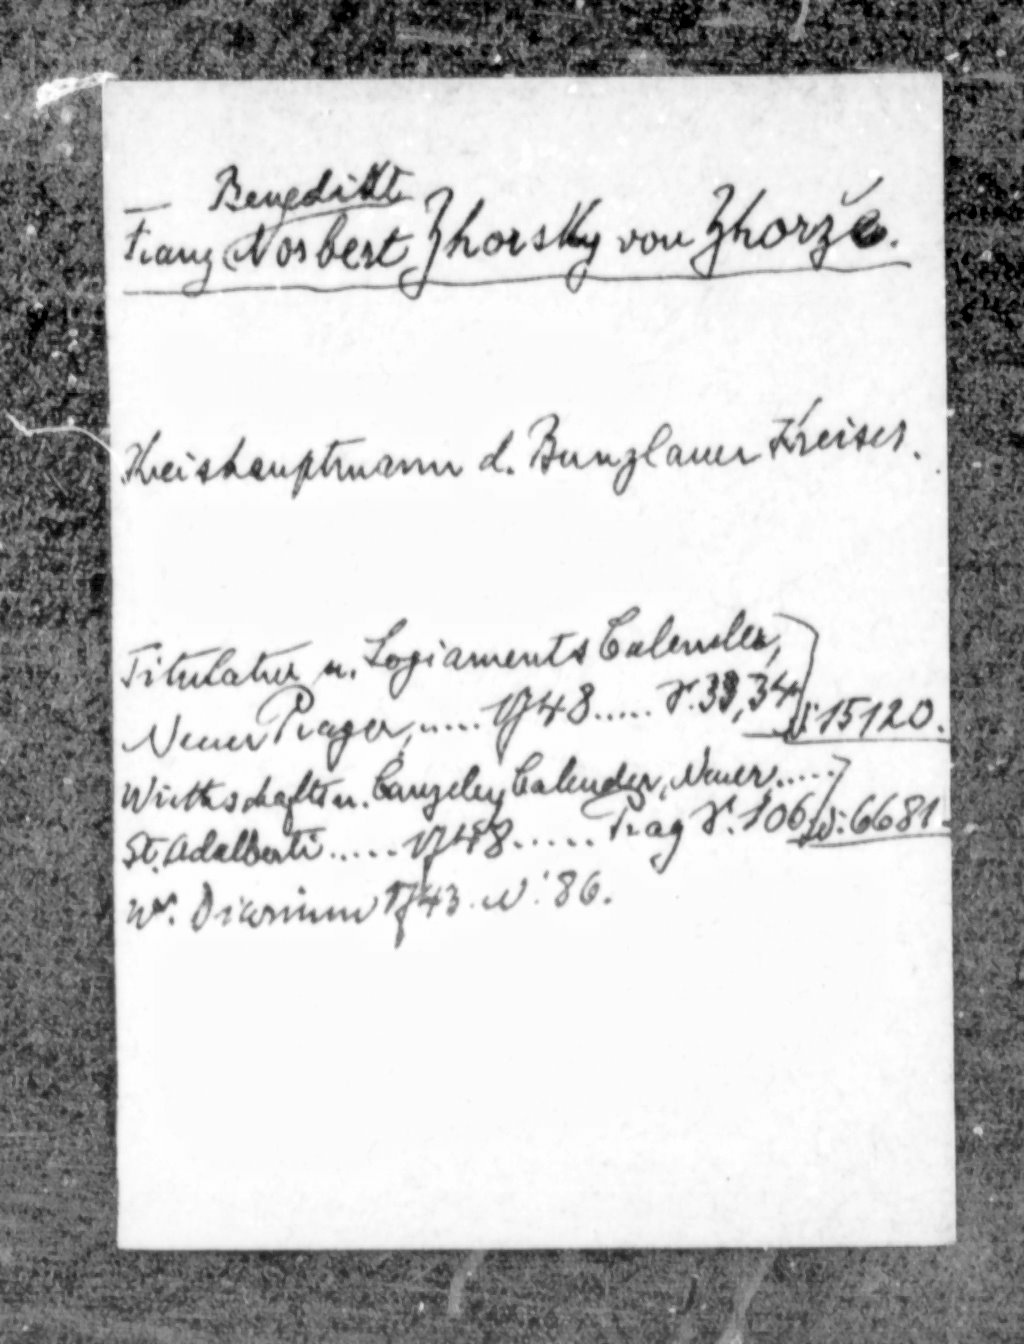 Benedikt
Franz Norbert Zhorsky von Zhorže.
Kreishauptmann d. Bunzlauer Kreises.
Titulatur u. Logiaments Calender,
Neuer Prager, ..... 1748 ..... S. 33, 34 N: 15120.
Wirthschafts u. Canzeley Calender, Neuer .....
St. Adalberti ..... 1748 ..... Prag S. 106 N: 6681.
Wr. Diarium 1743. N: 86.